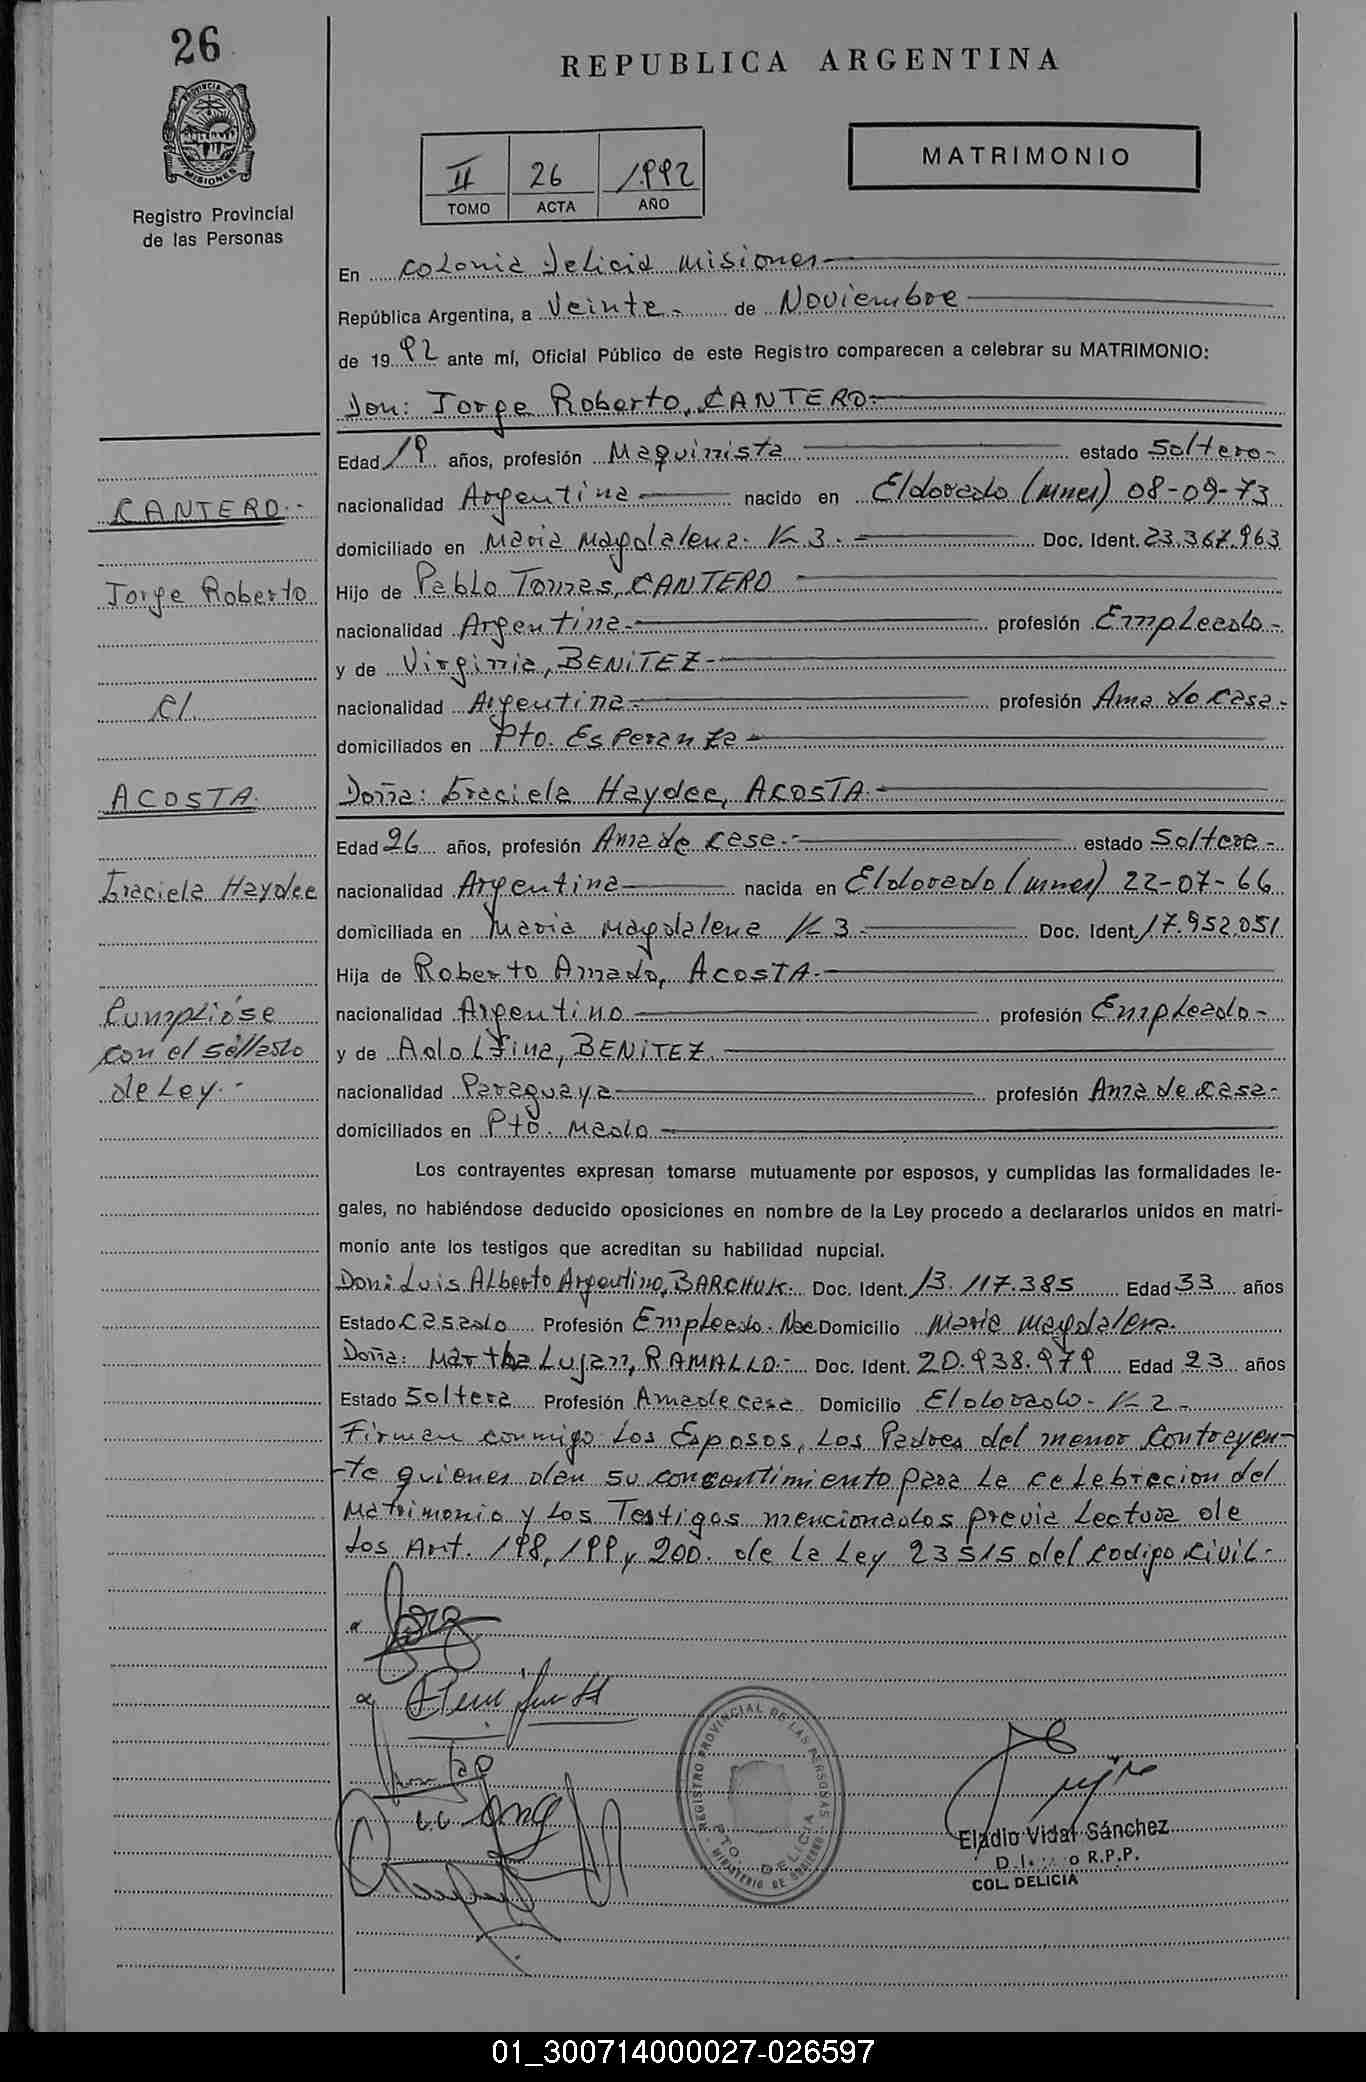 26
REPUBLICA ARGENTINA
PROVINCIA DE MISIONES
Registro Provincial
de las Personas
II 26 1992
TOMO ACTA AÑO
MATRIMONIO
En Colonia Delicia Misiones
República Argentina, a Veinte de Noviembre
de 1992 ante mí, Oficial Público de este Registro comparecen a celebrar su MATRIMONIO:
Don: Jorge Roberto, CANTERO.
Edad 19 años, profesión Maquinista estado Soltero-
nacionalidad Argentina nacido en Eldorado (mnes) 08-09-73
domiciliado en Maria Magdalena. K 3. Doc. Ident. 23.367.963
Hijo de Pablo Tomas, CANTERO
nacionalidad Argentina. profesión Empleado-
y de Virginia, BENITEZ-
nacionalidad Argentina. profesión Ama de Casa-
domiciliados en Pto. Esperanza
Doña: Graciela Haydee, ACOSTA.
Edad 26 años, profesión Ama de casa.- estado Soltera-
nacionalidad Argentina nacida en Eldorado (mnes) 22-07-66
domiciliada en Maria Magdalena K 3 Doc. Ident. 17.952.051
Hija de Roberto Amado, ACOSTA.
nacionalidad Argentino profesión Empleado-
y de Adolfina, BENITEZ
nacionalidad Paraguaya profesión Ama de casa-
domiciliados en Pto. Mado
CANTERO.-
Jorge Roberto
c/.
ACOSTA.
Graciela Haydee
Cumplióse
con el sellado
de Ley.-
Los contrayentes expresan tomarse mutuamente por esposos, y cumplidas las formalidades le-
gales, no habiéndose deducido oposiciones en nombre de la Ley procedo a declararlos unidos en matri-
monio ante los testigos que acreditan su habilidad nupcial.
Don: Luis Alberto Argentino, BARCHUK. Doc. Ident. 13.117.385 Edad 33 años
Estado Casado Profesión Empleado. Domicilio Maria Magdalena.
Doña: Martha Lujan, RAMALLO.- Doc. Ident. 20.938.979 Edad 23 años
Estado Soltera Profesión Ama de casa Domicilio Eldorado- K 2-
Firman conmigo los Esposos, los Padres del menor contrayen-
-te quienes dan su consentimiento para la celebracion del
Matrimonio y los Testigos mencionados previa lectura de
los Art. 198, 199 y 200. de la Ley 23515 del codigo civil-
REGISTRO PROVINCIAL DE LAS PERSONAS
PTO. DELICIA
MINISTERIO DE GOBIERNO
Eladio Vidal Sánchez
R.P.P.
COL. DELICIA
01_300714000027-026597